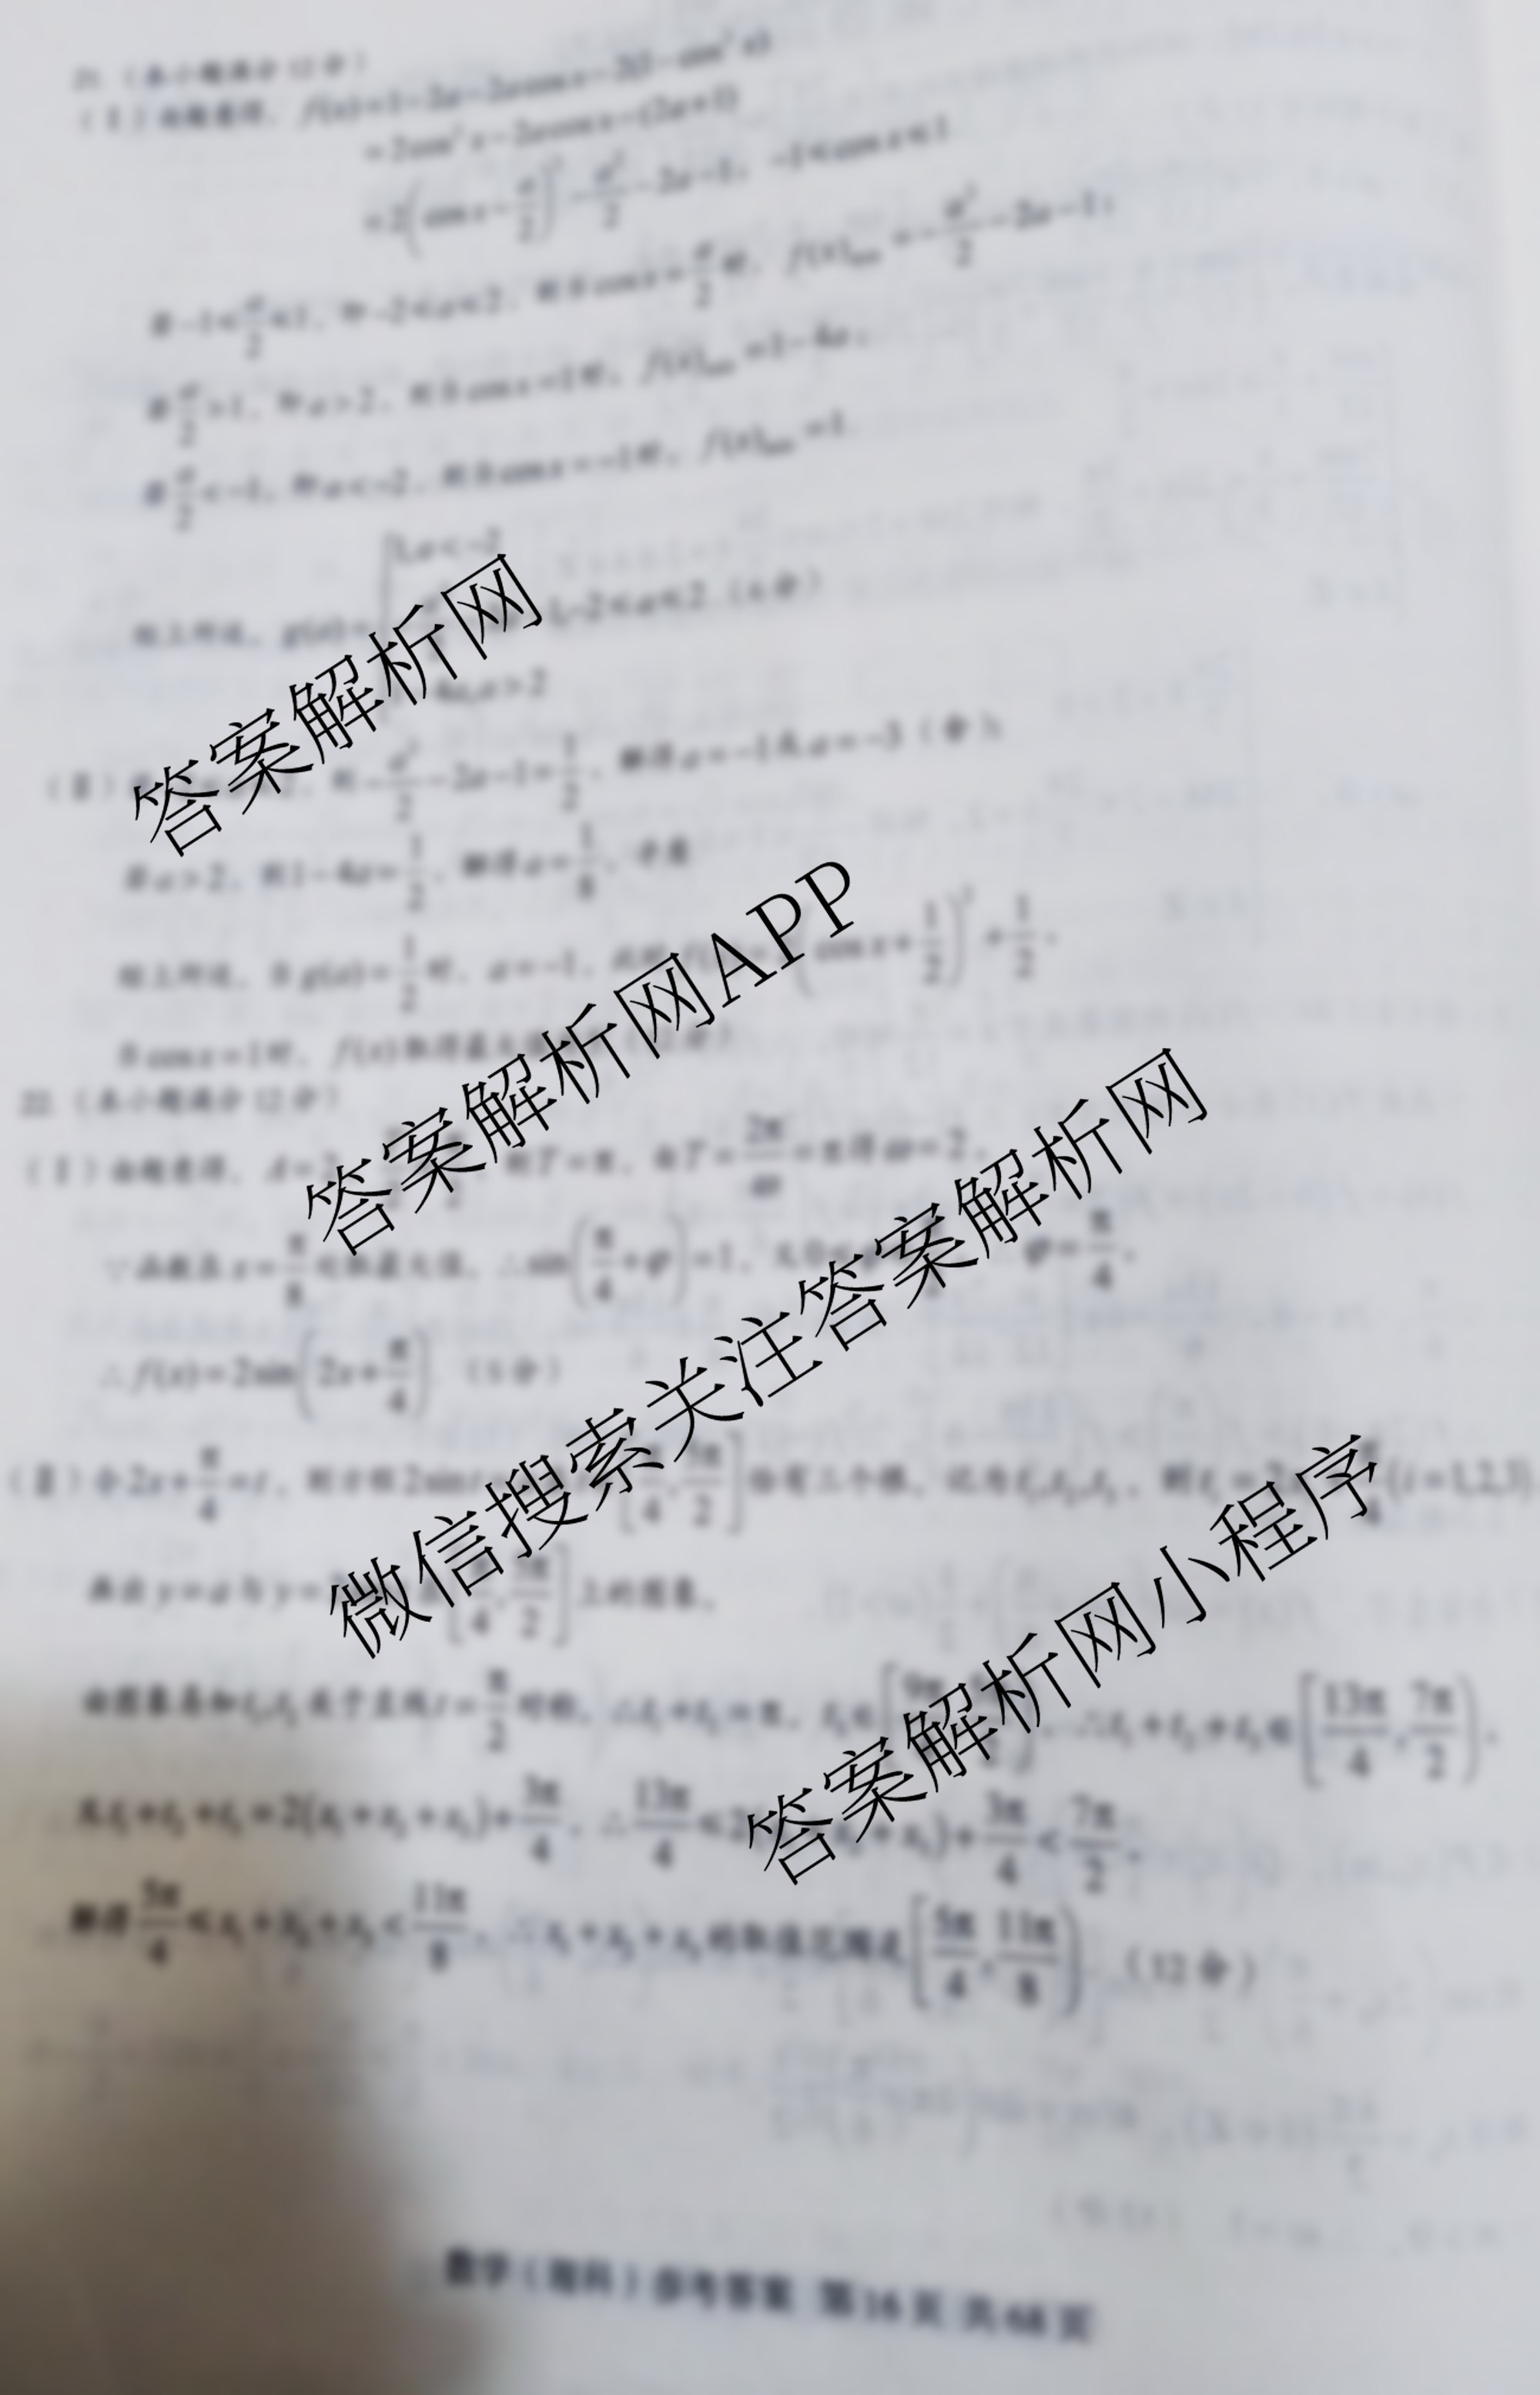 21.（本小题满分12分）
（Ⅰ）由题意得，f(x)=1-2a-2acosx-2(1-cos²x)
=2cos²x-2acosx-(2a+1)
=2(cosx-a/2)²-a²/2-2a-1，-1≤cosx≤1.
若-1≤a/2≤1，即-2≤a≤2，则当cosx=a/2时，f(x)min=-a²/2-2a-1；
若a/2>1，即a>2，则当cosx=1时，f(x)min=1-4a；
若a/2<-1，即a<-2，则当cosx=-1时，f(x)min=1.
1,a<-2
综上所述，g(a)= 1,-2≤a≤2.（6分）
4a,a>2
（Ⅱ） 则-a²/2-2a-1=1/2，解得a=-1或a=-3（舍）；
若a>2，则1-4a=1/2，解得a=1/8，矛盾.
综上所述，当g(a)=1/2时，a=-1，此时 (cosx+1/2)²+1/2，
当cosx=1时，f(x)取得最大
22.（本小题满分12分）
（Ⅰ）由题意得，A=2 则T=π，由T=2π/ω=π得ω=2，
∵函数在x=π/8处取最大值，∴sin(π/4+φ)=1，又0≤ φ=π/4，
∴f(x)=2sin(2x+π/4).（5分）
（Ⅱ）令2x+π/4=t，则方程2sint 4, π/2]恰有三个根，记为t₁,t₂,t₃，则tᵢ=2 4(i=1,2,3)
画出y=a与y= 4, π/2]上的图象，
由图象易知t₁,t₂关于直线t=π/2对称，∴t₁+t₂=π，t₃∈[9π ，∴t₁+t₂+t₃∈[13π/4,7π/2)，
又t₁+t₂+t₃=2(x₁+x₂+x₃)+3π/4，∴13π/4≤2 x₂+x₃)+3π/4<7π/2，
解得5π/4≤x₁+x₂+x₃<11π/8，∴x₁+x₂+x₃的取值范围是[5π/4,11π/8).（12分）
数学（理科）参考答案 第16页 共68页
答案解析网
答案解析网APP
微信搜索关注答案解析网
答案解析网小程序